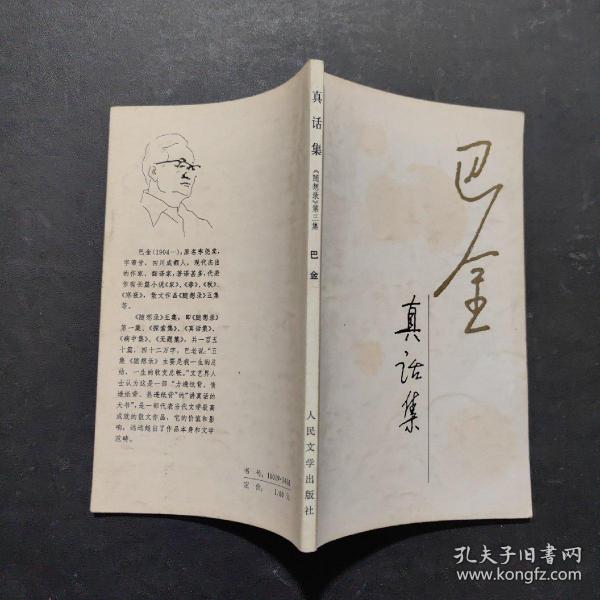 巴金
真话集
真话集
《随想录》第三集
巴金
人民文学出版社
巴金(1904—),原名李尧棠,
字芾甘,四川成都人,现代杰出
的作家、翻译家,著译甚多,代表
作有长篇小说《家》、《春》、《秋》、
《寒夜》,散文作品《随想录》五集
等。
《随想录》五集,即《随想录》
第一集、《探索集》、《真话集》、
《病中集》、《无题集》,共一百五
十篇,四十二万字,巴老说:"五
集《随想录》主要是我一生的总
结,一生的收支总帐。"文艺界人
士认为这是一部"力透纸背,情
透纸背,热透纸背"的"讲真话的
大书",是一部代表当代文学最高
成就的散文作品,它的价值和影
响,远远超出了作品本身和文学
范畴。
书号:10019·
定价:1.60元
孔夫子旧书网
www.kongfz.com